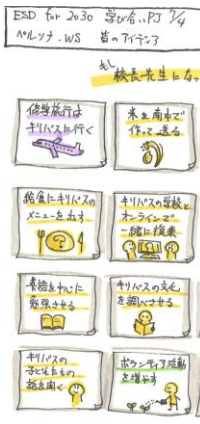 ESD for 2030 学び合いPJ 7/4
ペルソナ.WS 皆のアイディア
もし
校長先生になっ
修学旅行は
キリバスに行く
米を南市で
作って送る
給食にキリバスの
メニューを出す
キリバスの学校と
オンラインで
一緒に授業
英語を中心に
勉強させる
キリバスの文化
を調べさせる
キリバスの
子どもたちの
話を聞く
ボランティア活動
を増やす